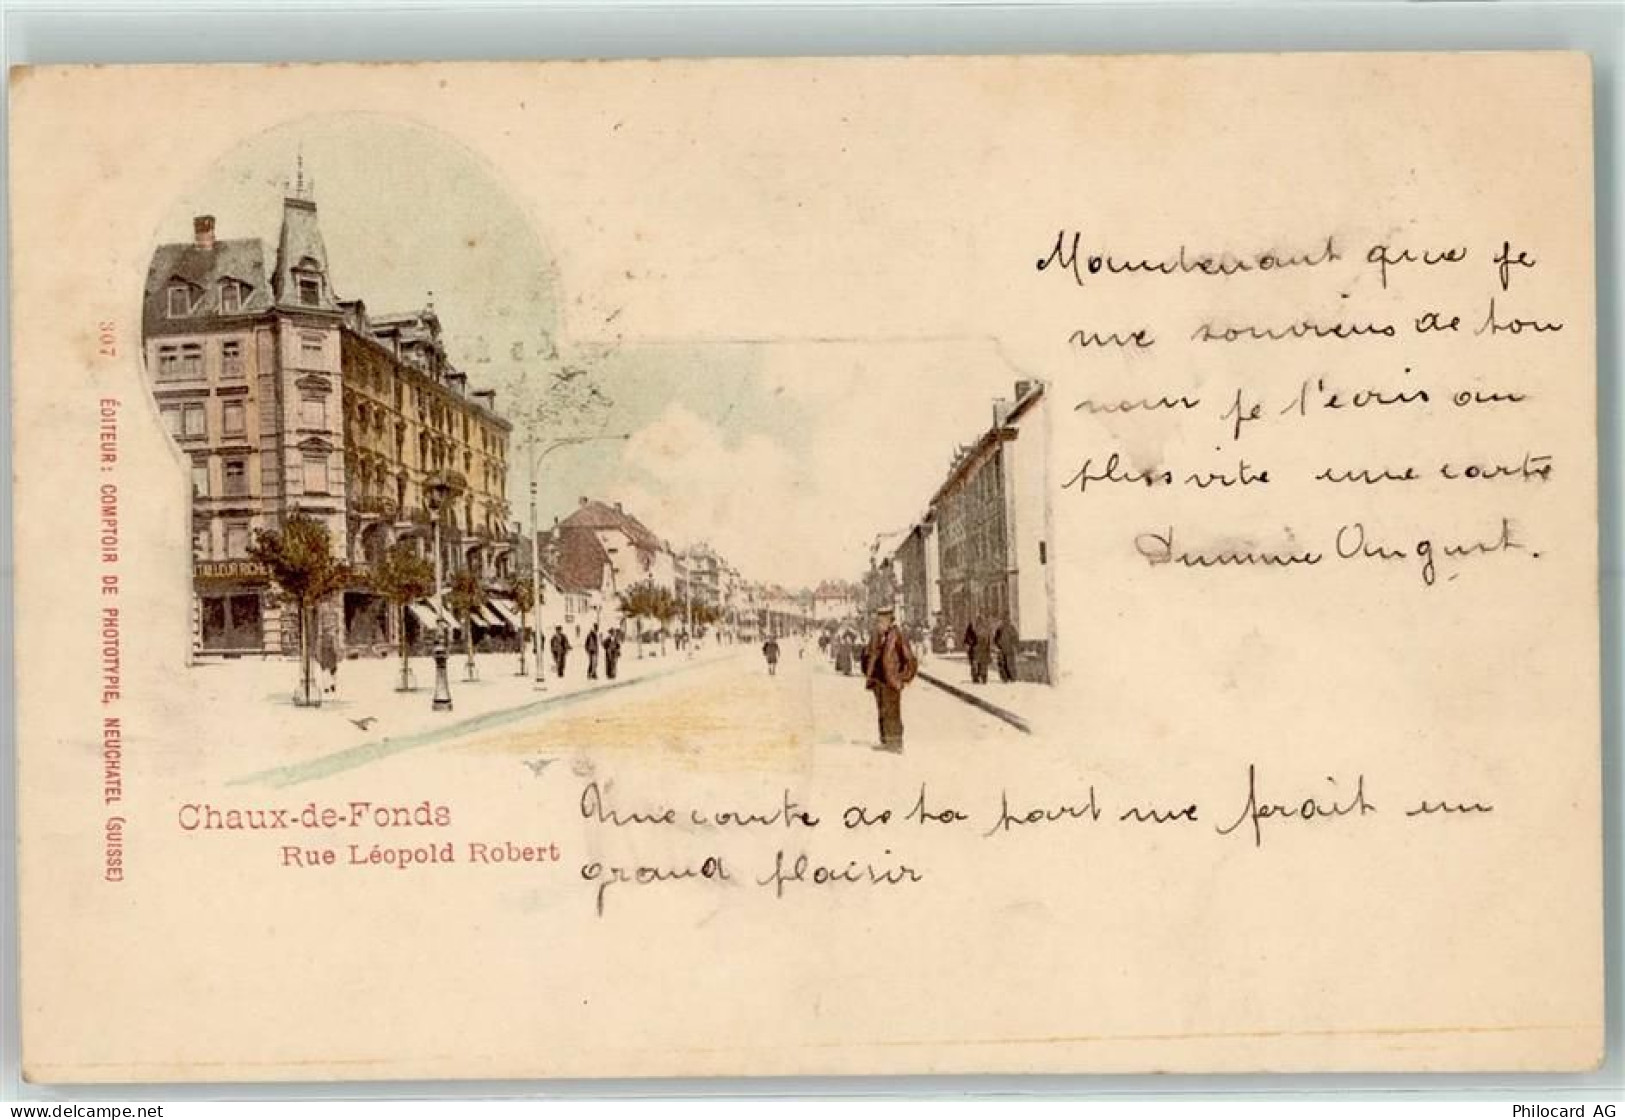 Maintenant que je
me souviens de ton
nom je t'écris au
plus vite une carte
August.
TAILLEUR RICHE
307 ÉDITEUR: COMPTOIR DE PHOTOTYPIE, NEUCHATEL (SUISSE)
Chaux-de-Fonds
Rue Léopold Robert
Une carte de ta part me ferait un
grand plaisir
http://www.delcampe.net
Philocard AG